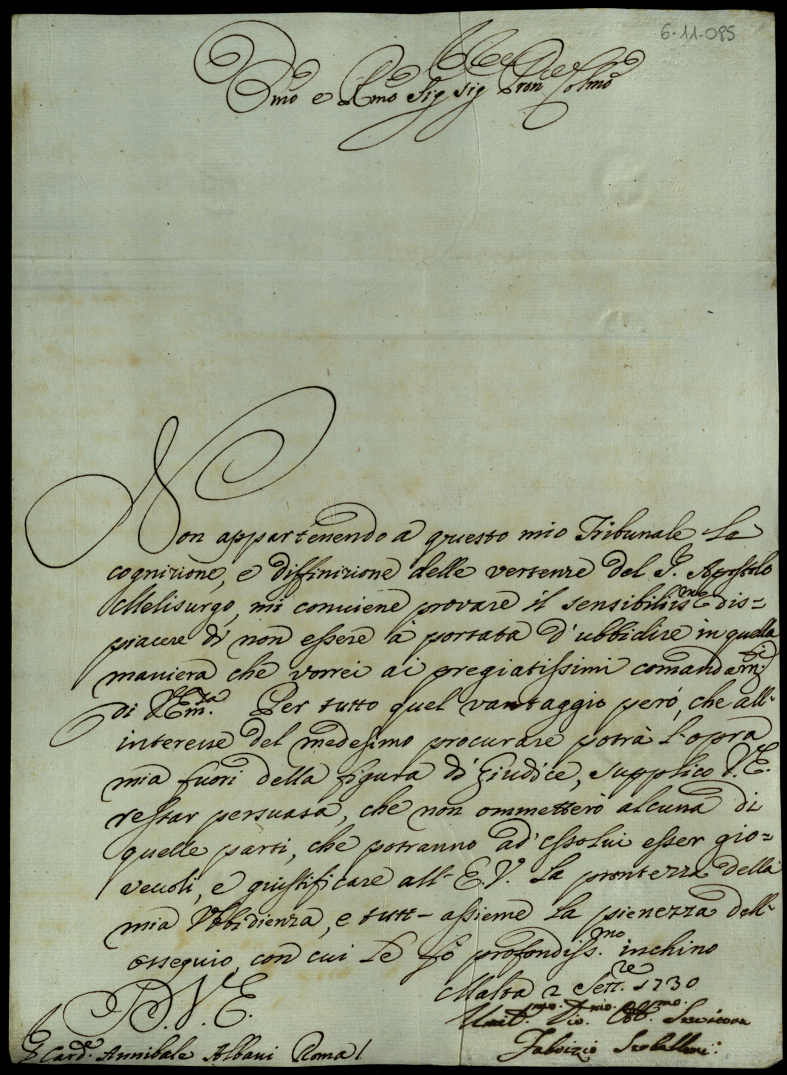 6-11-085
Emo e Rmo Sig Sig Pron Colmo
Non appartenendo a questo mio Tribunale la
cognizione, e diffinizione delle vertenze del S. Apostolo
Melisurgo, mi conviene provare il sensibiliss.mo dis=
piacere di non essere à portata d'ubbidire in quella
maniera che vorrei ai pregiatissimi comandam.ti
di V. Em.za Per tutto quel vantaggio però, che all'
interesse del medesimo procurare potrà l'opra
mia fuori della figura di Giudice, supplico V. E.
restar persuasa, che non ommetterò alcuna di
quelle parti, che potranno ad'essolui esser gio=
vevoli, e giustificare all' E. V. la prontezza della
mia Vbbidienza, e tutt' assieme la pienezza dell'
ossequio, con cui le fò profondiss.mo inchino
Malta 2 Sett.re 1730
D. V. E.
Umil.mo Div.mo Obb.mo Servitore
Fabrizio Serbelloni
Card. Annibale Albani Roma